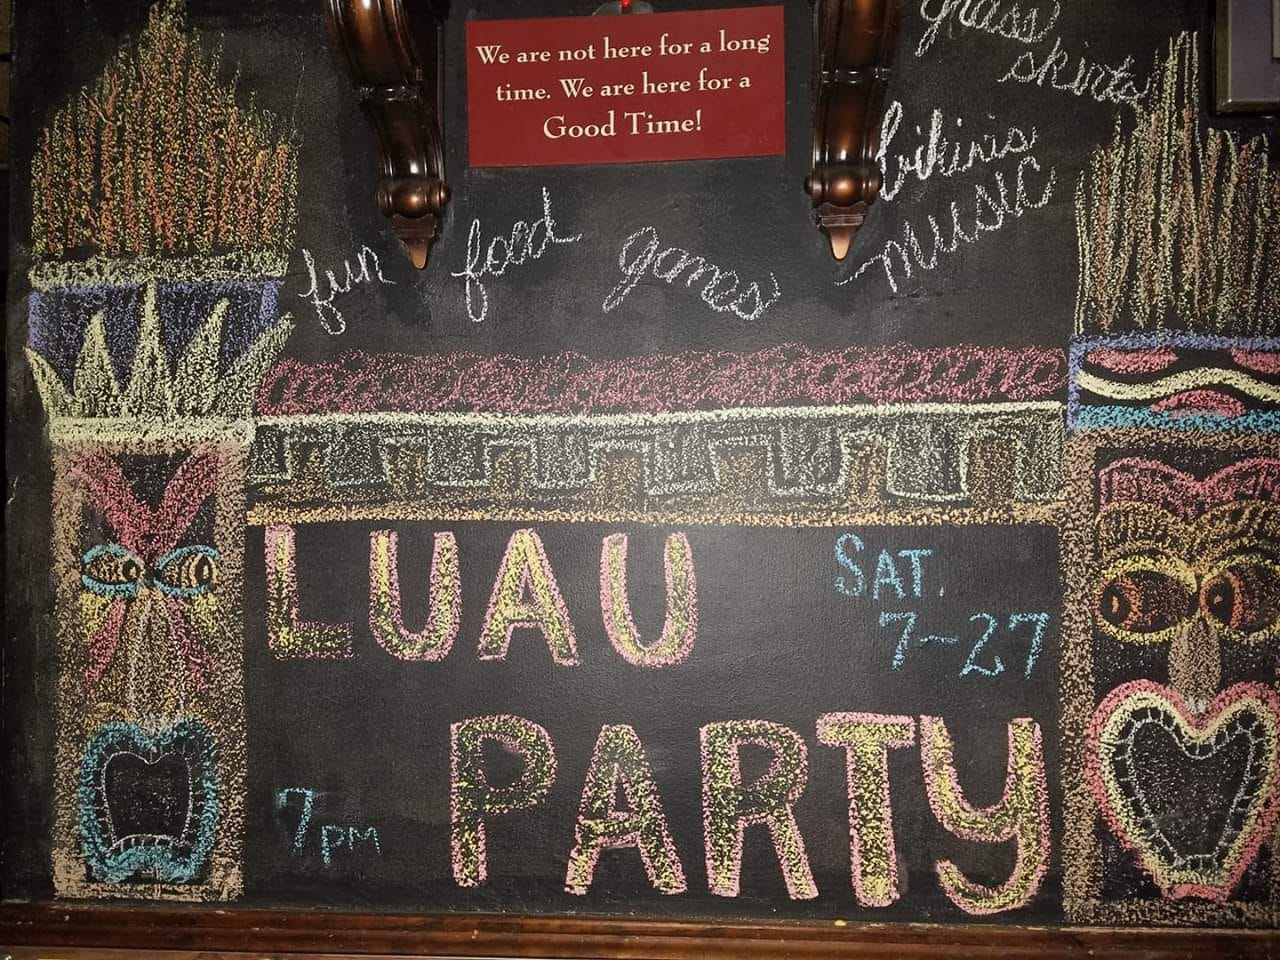 We are not here for a long
time. We are here for a
Good Time!
grass
skirts
bikinis
music
fun food games
LUAU
SAT.
7-27
PARTY
7PM